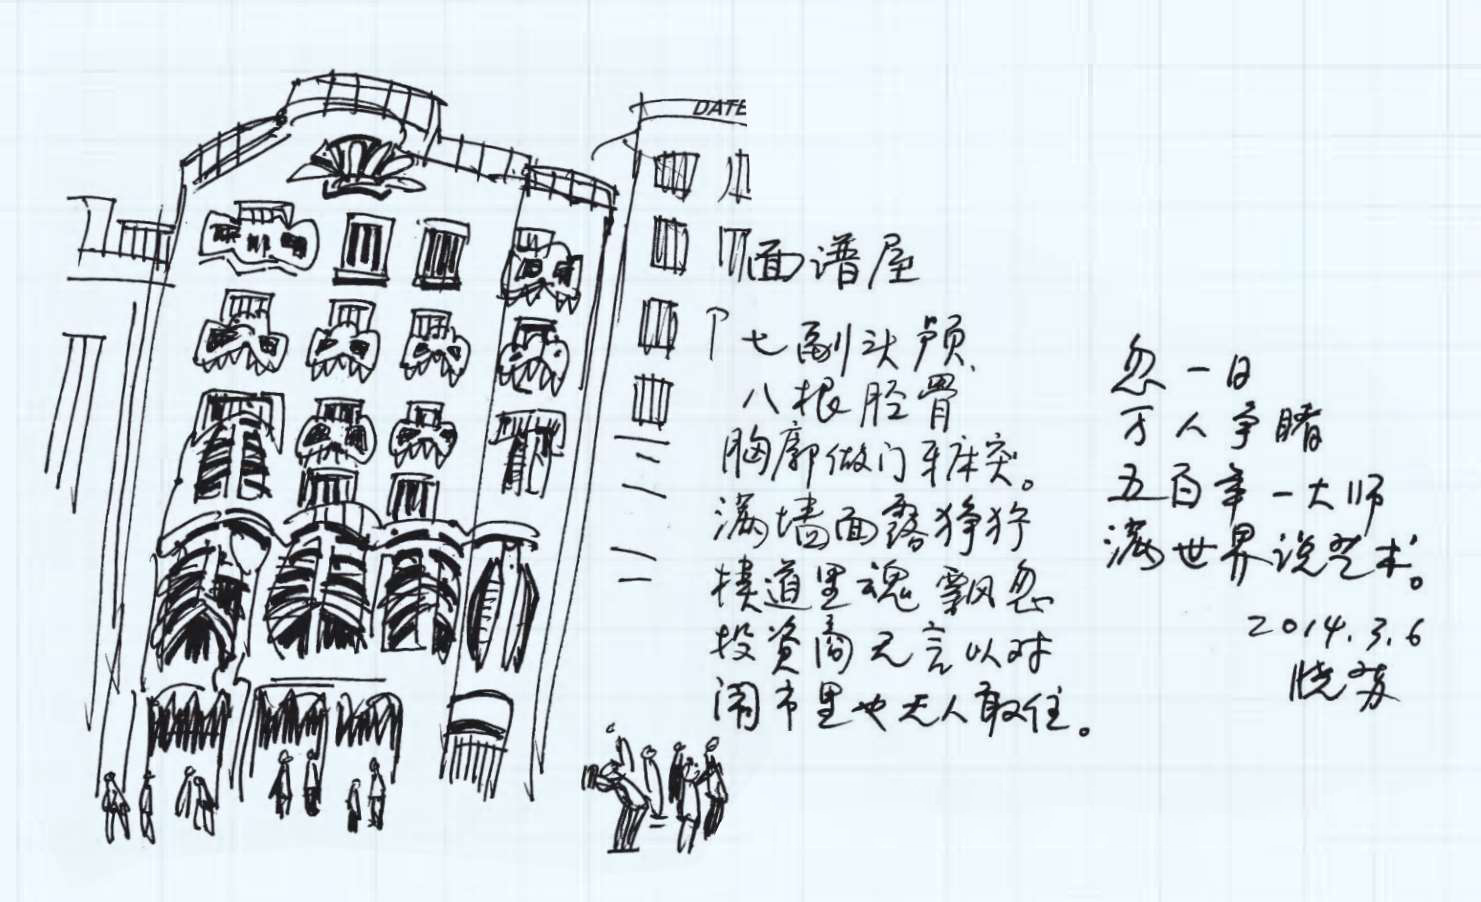 DATE
面谱屋
七副头颅
八根胫骨
胸廓做门牙床突。
满墙面露狰狞
楼道里魂飘忽
投资商无言以对
闹市里也无人敢住。
忽一日
万人争睹
五百年一大师
满世界说艺术。
2014.3.6
晓芳